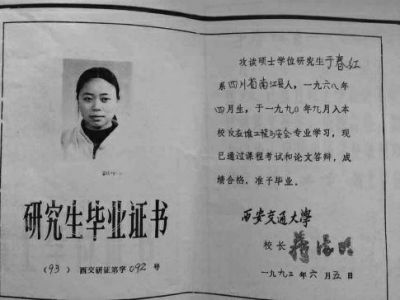 研究生毕业证书
(93) 西交研证第字 092 号
攻读硕士学位研究生于春红
系四川省南江县人，一九六八年
四月生，于一九九〇年九月入本
校反应堆工程与安全专业学习，现
已通过课程考试和论文答辩，成
绩合格，准予毕业。
西安交通大学
校长
一九九三年六月五日